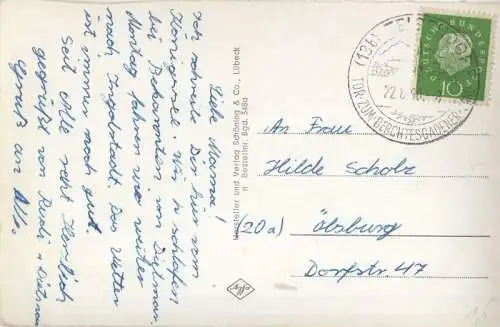 Liebe Mama!
Ich schreibe Dir hier vom
Königssee. Wir schlafen
bei Bekannten von Dietmar.
Montag fahren wir weiter
nach Ingolstadt. Das Wetter
ist immer noch gut.
Seid Alle recht Herzlich
gegrüßt von Rudi + Dietmar
Gruß an Alle.
Hersteller und Verlag Schöning & Co., Lübeck
Bestellnr. Bgd. 548a
(13b)
22.8.
TOR ZUM BERCHTESGADENER
DEUTSCHE BUNDESPOST
10
An Frau
Hilde Scholz
(20a) Ölsburg
Dorfstr. 47